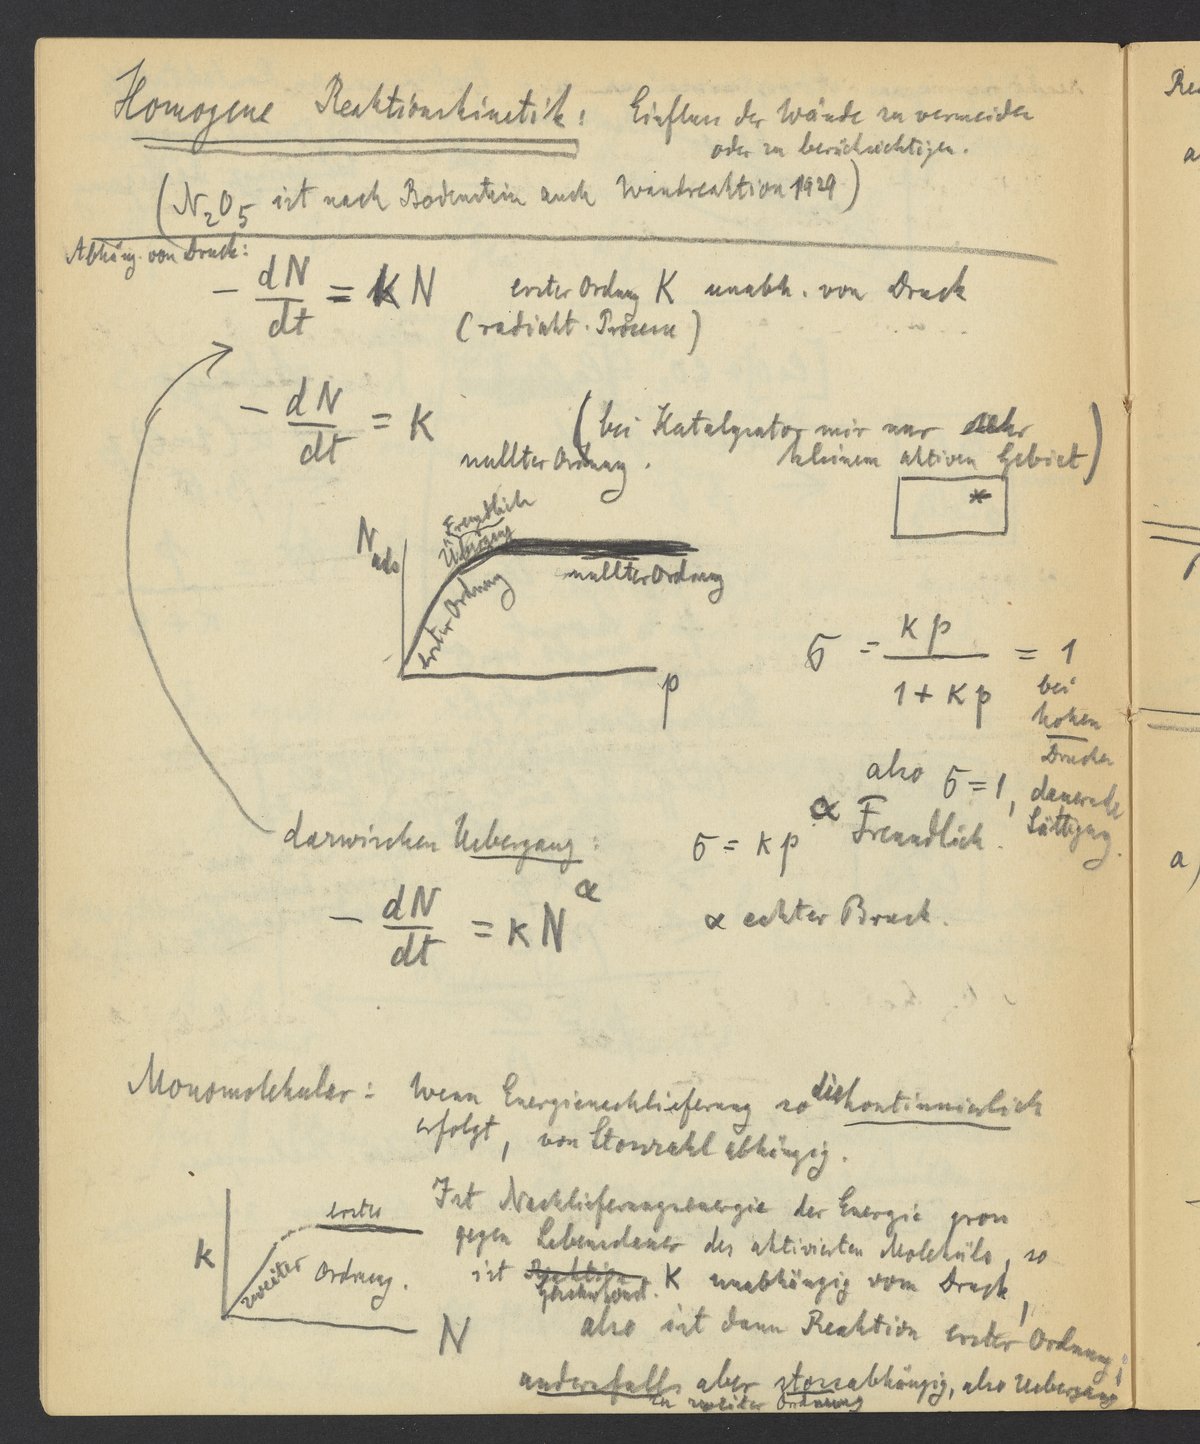 Homogene Reaktionskinetik: Einfluss der Wände zu vermeiden
oder zu berücksichtigen.
(N2O5 ist nach Bodenstein auch Wandreaktion 1929)
Abhäng. von Druck:
- dN/dt = K N erster Ordnung K unabh. von Druck
(radioakt. Prozesse)
- dN/dt = K (bei Katalysator mir nur sehr
nullter Ordnung. kleinem aktiven Gebiet)
*
Nads
Freundlich
Übergang
erster Ordnung
nullter Ordnung
p
σ = κp / 1 + κp = 1
bei
hohen
Drucken
also σ = 1, dauernde
Sättigung.
dazwischen Uebergang: σ = κ p^α Freundlich.
- dN/dt = κ N^α α echter Bruch.
Monomolekular: Wenn Energienachlieferung so diskontinuierlich
erfolgt, von Stosszahl abhängig.
Ist Nachlieferungsenergie der Energie gross
gegen Lebensdauer des aktivierten Moleküls, so
ist Reaktion K unabhängig vom Druck,
also ist dann Reaktion erster Ordnung;
andernfalls aber stossabhängig, also Uebergang
zu zweiter Ordnung
K
erster
zweiter Ordnung.
N
Rea
a)